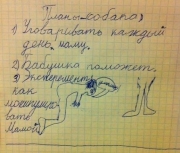 Планы-собака)
1) Уговаривать каждый
день маму.
2) Бабушка поможет.
3) Эксперимент
как
вате
Мамой